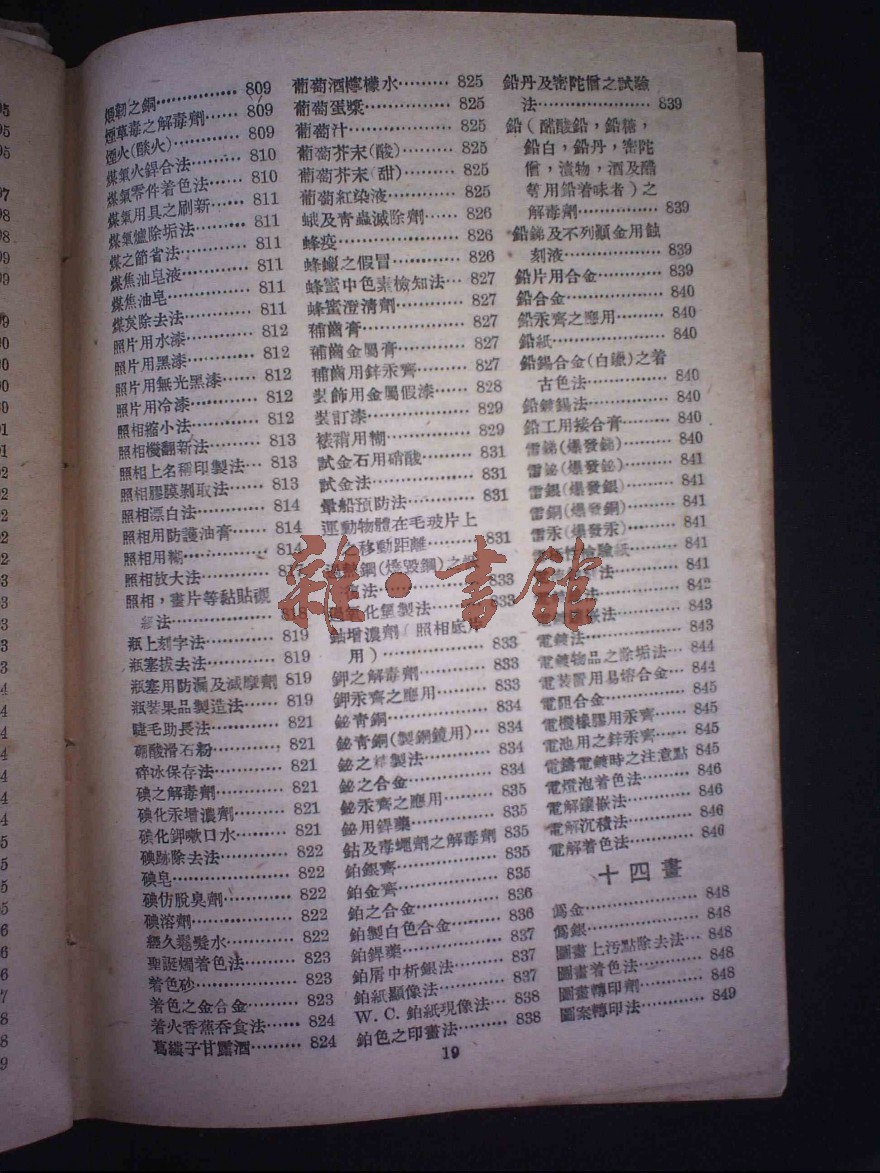 煅韌之銅……………809
煙草毒之解毒劑……809
煙火(燄火)…………809
煤氣火銲合法………810
煤氣零件着色法……810
煤氣用具之刷新……811
煤氣爐除垢法………811
煤之節省法…………811
煤焦油皂液…………811
煤焦油皂……………811
煤炱除去法…………811
照片用水漆…………812
照片用黑漆…………812
照片用無光黑漆……812
照片用冷漆…………812
照相縮小法…………812
照相機翻新法………813
照相上名稱印製法…813
照相膠膜剝取法……813
照相漂白法…………814
照相用防護油膏……814
照相用糊……………814
照相放大法…………817
照相，畫片等黏貼襯
法……………818
瓶上刻字法…………819
瓶塞拔去法…………819
瓶塞用防漏及減摩劑 819
瓶裝果品製造法……819
睫毛助長法…………821
硼酸滑石粉…………821
碎冰保存法…………821
碘之解毒劑…………821
碘化汞增濃劑………821
碘化鉀嗽口水………821
碘跡除去法…………822
碘皂…………………822
碘仿脫臭劑…………822
碘溶劑………………822
經久鬈髮水…………822
聖誕燭着色法………823
着色砂………………823
着色之金合金………823
着火香蕉吞食法……824
葛縷子甘露酒………824
葡萄酒檸檬水………825
葡萄蛋漿……………825
葡萄汁………………825
葡萄芥末(酸)………825
葡萄芥末(甜)………825
葡萄紅染液…………825
蛾及青蟲滅除劑……826
蜂疫…………………826
蜂蠟之假冒…………826
蜂蜜中色素檢知法…827
蜂蜜澄清劑…………827
補齒膏………………827
補齒金屬膏…………827
補齒用鋅汞齊………827
裝飾用金屬假漆……828
裝訂漆………………829
裱褙用糊……………829
試金石用硝酸………831
試金法………………831
暈船預防法…………831
運動物體在毛玻片上
之移動距離………831
鋼(燒毀鋼)之
法……………833
氧化氫製法………833
鈾增濃劑(照相底片
用)………………833
鉀之解毒劑…………833
鉀汞齊之應用………833
鉍青銅………………834
鉍青銅(製銅鏡用)…834
鉍之精製法…………834
鉍之合金……………834
鉍汞齊之應用………835
鉍用銲藥……………835
鈷及毒蠅劑之解毒劑 835
鉑銀齊………………835
鉑金齊………………835
鉑之合金……………836
鉑製白色合金………836
鉑銲藥………………837
鉑屑中析銀法………837
鉑紙顯像法…………837
W. C. 鉑紙現像法…838
鉑色之印畫法………838
鉛丹及密陀僧之試驗
法…………………839
鉛(醋酸鉛，鉛糖，
鉛白，鉛丹，密陀
僧，漬物，酒及醋
等用鉛着味者)之
解毒劑……………839
鉛銻及不列顛金用蝕
刻液………………839
鉛片用合金…………839
鉛合金………………840
鉛汞齊之應用………840
鉛紙…………………840
鉛錫合金(白鑞)之着
古色法……………840
鉛鍍錫法……………840
鉛工用接合膏………840
雷銻(爆發銻)………840
雷鉍(爆發鉍)………841
雷銀(爆發銀)………841
雷銅(爆發銅)………841
雷汞(爆發汞)………841
841
法……………841
法……………842
法……………843
電鍍法………………843
電鍍物品之除垢法…844
電裝置用易熔合金…844
電阻合金……………845
電機橡膠用汞齊……845
電池用之鋅汞齊……845
電鑄電鍍時之注意點 845
電燈泡着色法………846
電解鑲嵌法…………846
電解沉積法…………846
電解着色法…………846
十四畫
僞金…………………848
僞銀…………………848
圖畫上污點除去法…848
圖畫着色法…………848
圖畫轉印劑…………848
圖案轉印法…………849
19
雜·書館